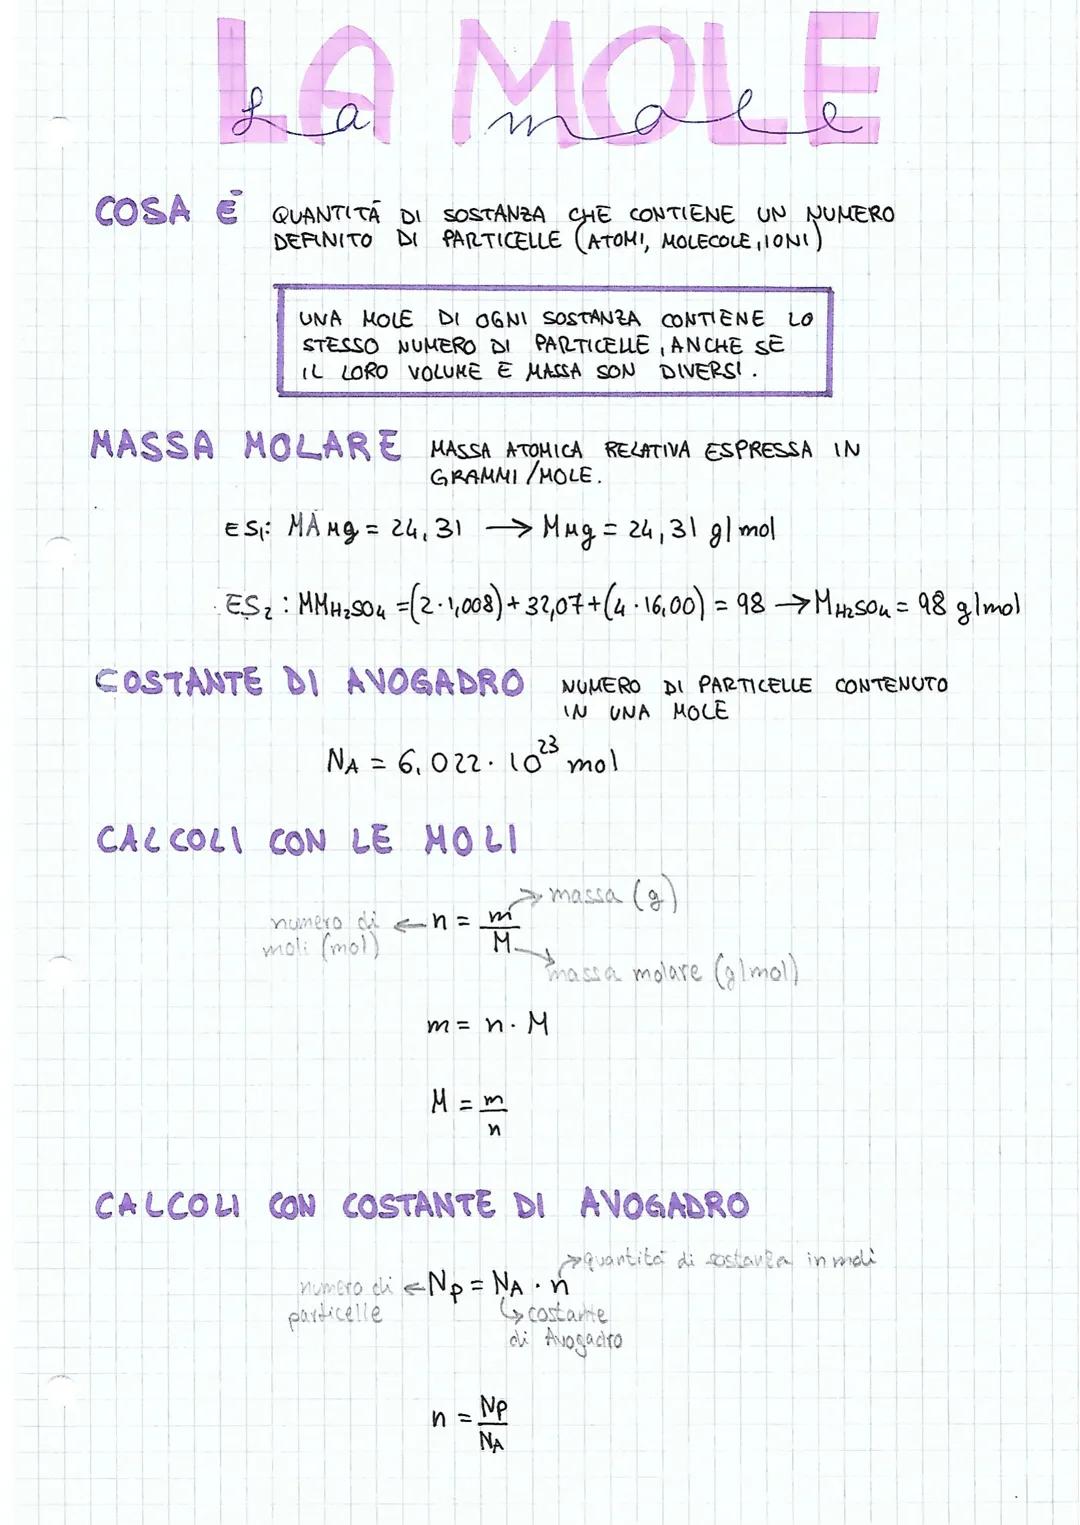 LA MOLE
La mole
COSA È QUANTITÀ DI SOSTANZA CHE CONTIENE UN NUMERO
DEFINITO DI PARTICELLE (ATOMI, MOLECOLE, IONI)
UNA MOLE DI OGNI SOSTANZA CONTIENE LO
STESSO NUMERO DI PARTICELLE, ANCHE SE
IL LORO VOLUME E MASSA SON DIVERSI.
MASSA MOLARE MASSA ATOMICA RELATIVA ESPRESSA IN
GRAMMI/MOLE.
ES₁: MA Mg = 24,31 → M Mg = 24,31 g/mol
ES₂: MMH₂SO₄ = (2·1,008) + 32,07 + (4·16,00) = 98 → MH₂SO₄ = 98 g/mol
COSTANTE DI AVOGADRO NUMERO DI PARTICELLE CONTENUTO
IN UNA MOLE
NA = 6,022 · 10²³ mol
CALCOLI CON LE MOLI
→ massa (g)
numero di ← n = m/M
moli (mol)
massa molare (g/mol)
m = n · M
M = m/n
CALCOLI CON COSTANTE DI AVOGADRO
→ quantità di sostanza in moli
numero di ← Np = NA · n
particelle ↳ costante
di Avogadro
n = Np/NA